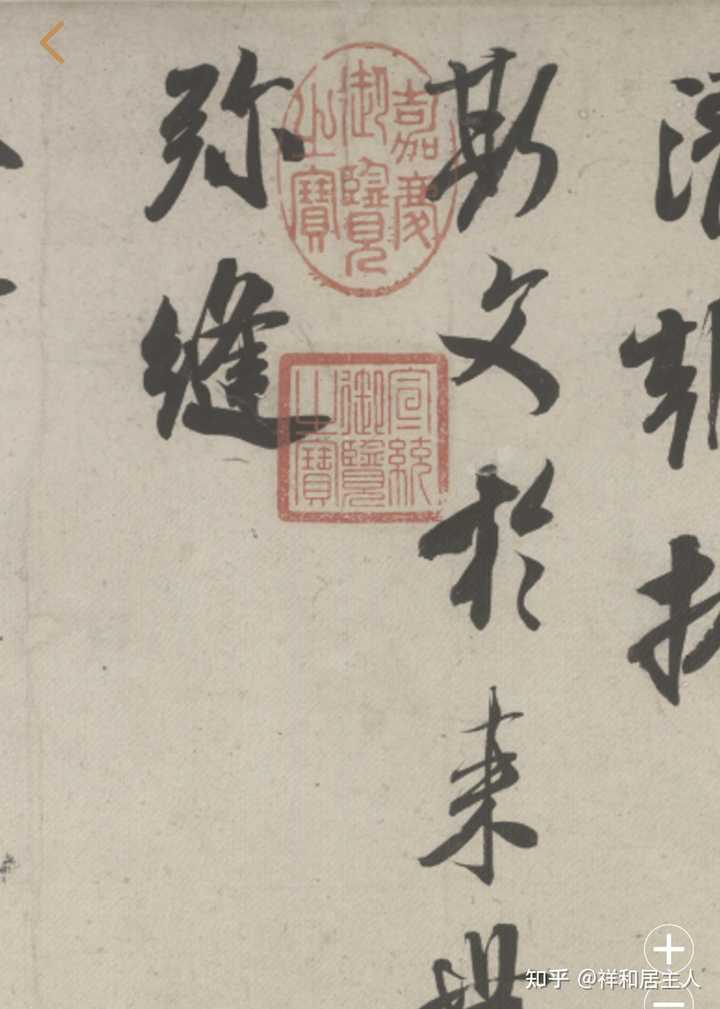 斯文於来
弥縫
嘉慶
御覽
之寶
宣統
御覽
之寶
知乎 @祥和居主人